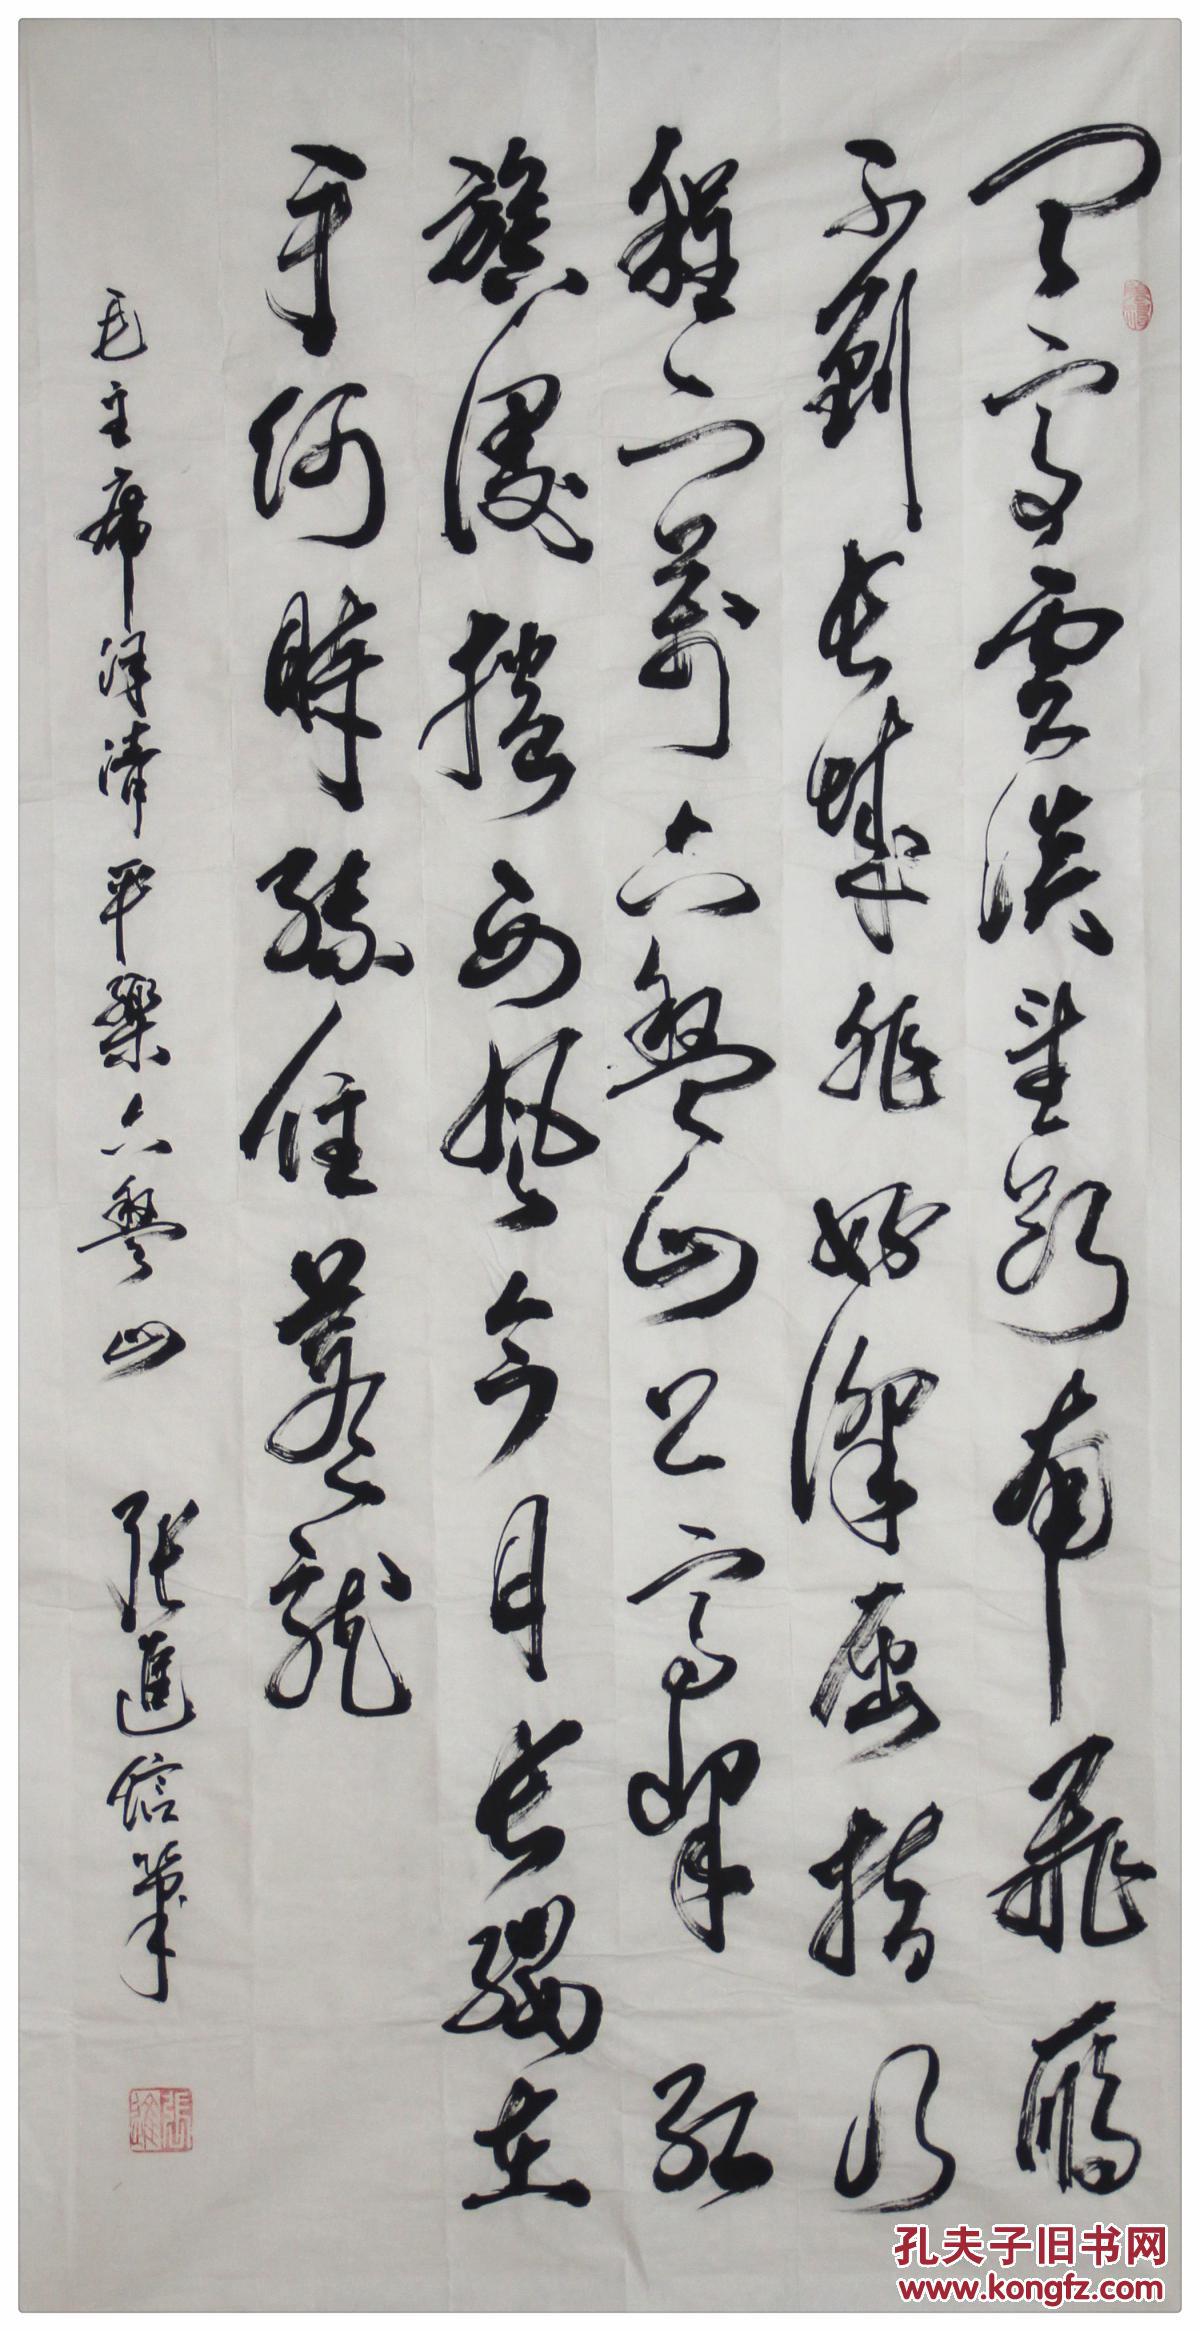 天高雲淡望斷南飛雁
不到長城非好漢屈指行
程二萬六盤山上高峰紅
旗漫捲西風今日長纓在
手何時縛住蒼龍
毛主席清平樂六盤山 張進信筆
孔夫子旧书网
www.kongfz.com